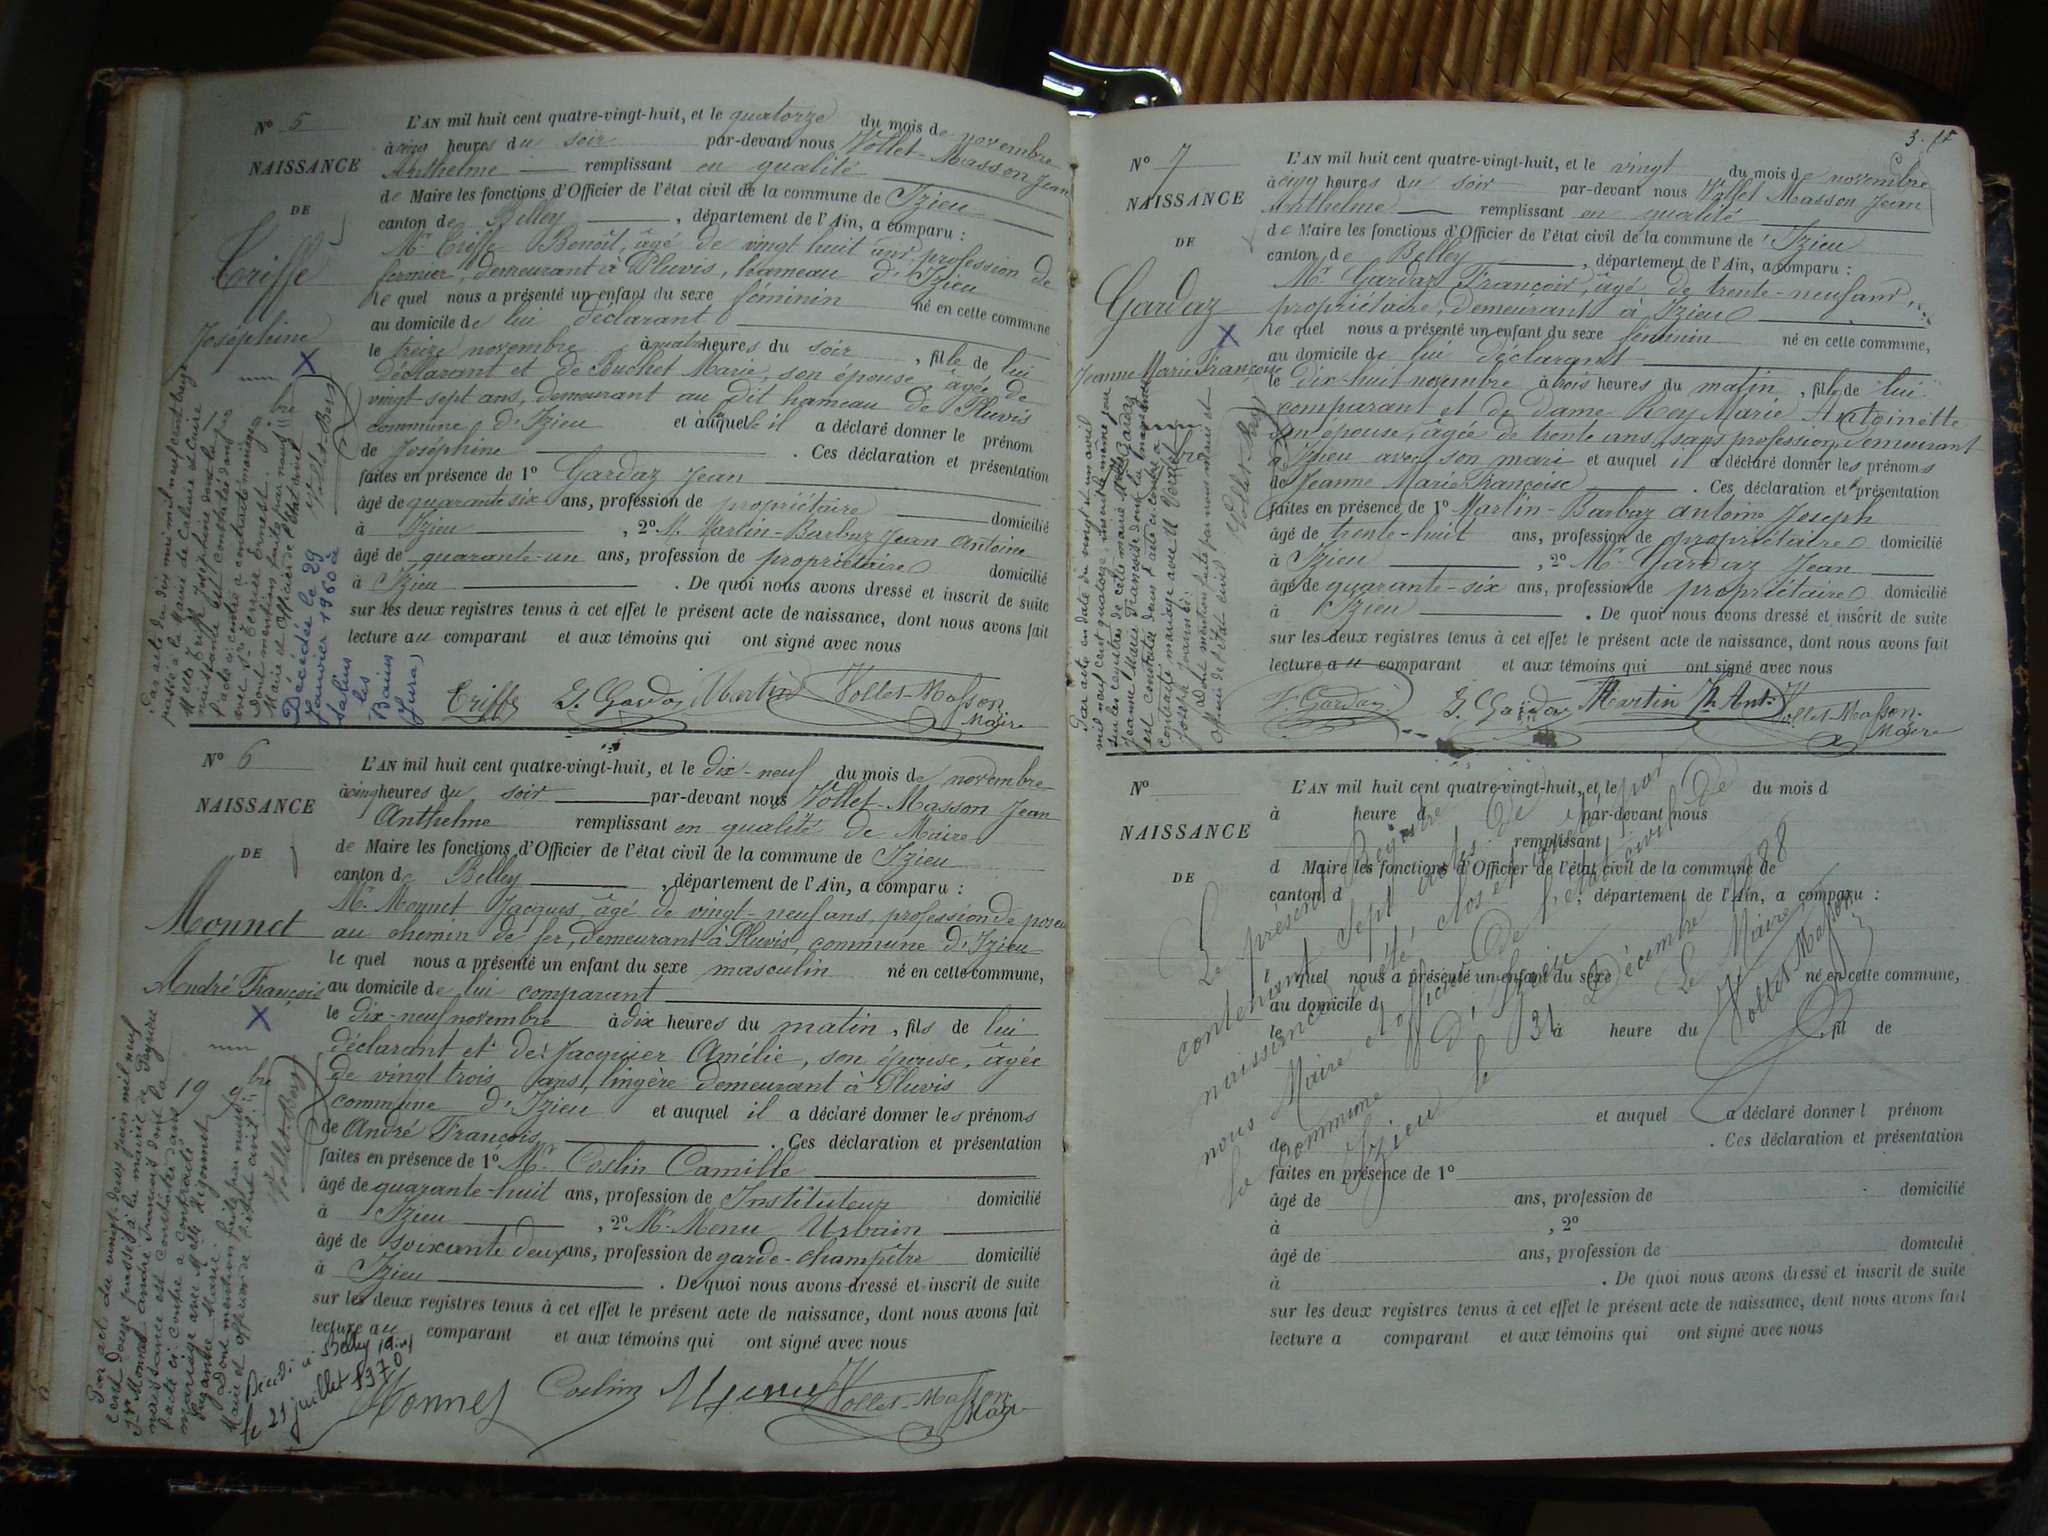 Nº 5
NAISSANCE
DE
Triffe
Joséphine
L'AN mil huit cent quatre-vingt-huit, et le quatorze du mois de novembre
à cinq heures du soir par-devant nous Vollet-Masson Jean
Anthelme remplissant en qualité
de Maire les fonctions d'Officier de l'état civil de la commune de Izieu
canton de Belley, département de l'Ain, a comparu :
Mr Triffe Benoît, âgé de vingt huit ans, profession de
fermier, demeurant à Pluvis, hameau d'Izieu
le quel nous a présenté un enfant du sexe féminin né en cette commune
au domicile de lui déclarant
le treize novembre à quatre heures du soir, fille de lui
déclarant et de Buchet Marie, son épouse, âgée de
vingt sept ans, demeurant au dit hameau de Pluvis
commune d'Izieu et auquel il a déclaré donner le prénom
de Joséphine. Ces déclaration et présentation
faites en présence de 1º Gardaz Jean
âgé de quarante six ans, profession de propriétaire domicilié
à Izieu, 2º M. Martin-Barbaz Jean Antoine
âgé de quarante-un ans, profession de propriétaire domicilié
à Izieu. De quoi nous avons dressé et inscrit de suite
sur les deux registres tenus à cet effet le présent acte de naissance, dont nous avons fait
lecture au comparant et aux témoins qui ont signé avec nous
Triffe J. Gardaz Martin Vollet-Masson
Maire
Décédée le 29
Janvier 1960 à
Salins
les
Bains
(Jura)
Nº 6
NAISSANCE
DE
Monnet
André François
L'AN mil huit cent quatre-vingt-huit, et le dix-neuf du mois de novembre
à cinq heures du soir par-devant nous Vollet-Masson Jean
Anthelme remplissant en qualité de Maire
de Maire les fonctions d'Officier de l'état civil de la commune de Izieu
canton de Belley, département de l'Ain, a comparu :
Mr Monnet Jacques, âgé de vingt-neuf ans, profession de poseur
au chemin de fer, demeurant à Pluvis, commune d'Izieu
le quel nous a présenté un enfant du sexe masculin né en cette commune,
au domicile de lui comparant
le dix-neuf novembre à dix heures du matin, fils de lui
déclarant et de Jacquier Amélie, son épouse, âgée
de vingt trois ans, lingère demeurant à Pluvis
commune d'Izieu et auquel il a déclaré donner les prénoms
de André François. Ces déclaration et présentation
faites en présence de 1º Mr Coslin Camille
âgé de quarante-huit ans, profession de Instituteur domicilié
à Izieu, 2º Mr Menu Urbain
âgé de soixante deux ans, profession de garde-champêtre domicilié
à Izieu. De quoi nous avons dressé et inscrit de suite
sur les deux registres tenus à cet effet le présent acte de naissance, dont nous avons fait
lecture au comparant et aux témoins qui ont signé avec nous
Monnet Coslin Menu Vollet-Masson
Maire
Décédé à Belley (Ain)
le 21 juillet 1970
3.
Nº 7
NAISSANCE
DE
Gardaz
Jeanne Marie Françoise
L'AN mil huit cent quatre-vingt-huit, et le vingt du mois de novembre
à cinq heures du soir par-devant nous Vollet Masson Jean
Anthelme remplissant en qualité
de Maire les fonctions d'Officier de l'état civil de la commune de Izieu
canton de Belley, département de l'Ain, a comparu :
Mr Gardaz François, âgé de trente-neuf ans,
propriétaire, demeurant à Izieu
le quel nous a présenté un enfant du sexe féminin né en cette commune,
au domicile de lui déclarant
le dix-huit novembre à trois heures du matin, fille de lui
comparant et de dame Rey Marie Antoinette
son épouse, âgée de trente ans, sans profession, demeurant
à Izieu avec son mari et auquel il a déclaré donner les prénoms
de Jeanne Marie Françoise. Ces déclaration et présentation
faites en présence de 1º Martin-Barbaz antoine Joseph
âgé de trente-huit ans, profession de propriétaire domicilié
à Izieu, 2º Mr Gardaz Jean
âgé de quarante-six ans, profession de propriétaire domicilié
à Izieu. De quoi nous avons dressé et inscrit de suite
sur les deux registres tenus à cet effet le présent acte de naissance, dont nous avons fait
lecture au comparant et aux témoins qui ont signé avec nous
F. Gardaz J. Gardaz Martin Jh Ant. Vollet-Masson
Maire
Nº
NAISSANCE
DE
L'AN mil huit cent quatre-vingt-huit, et le du mois d
à heure d par-devant nous
remplissant
d Maire les fonctions d'Officier de l'état civil de la commune de
canton d, département de l'Ain, a comparu :
l quel nous a présenté un enfant du sexe né en cette commune,
au domicile d
le à heure du, fil de
et auquel a déclaré donner l prénom
de. Ces déclaration et présentation
faites en présence de 1º
âgé de ans, profession de domicilié
à, 2º
âgé de ans, profession de domicilié
à. De quoi nous avons dressé et inscrit de suite
sur les deux registres tenus à cet effet le présent acte de naissance, dont nous avons fait
lecture a comparant et aux témoins qui ont signé avec nous
Le présent Registre
contenant sept actes de
naissance a été clos et arrêté par
nous Maire et officier de l'état civil de
la commune d'Izieu
Izieu le 31 Décembre 1888
Le Maire
Vollet-Masson